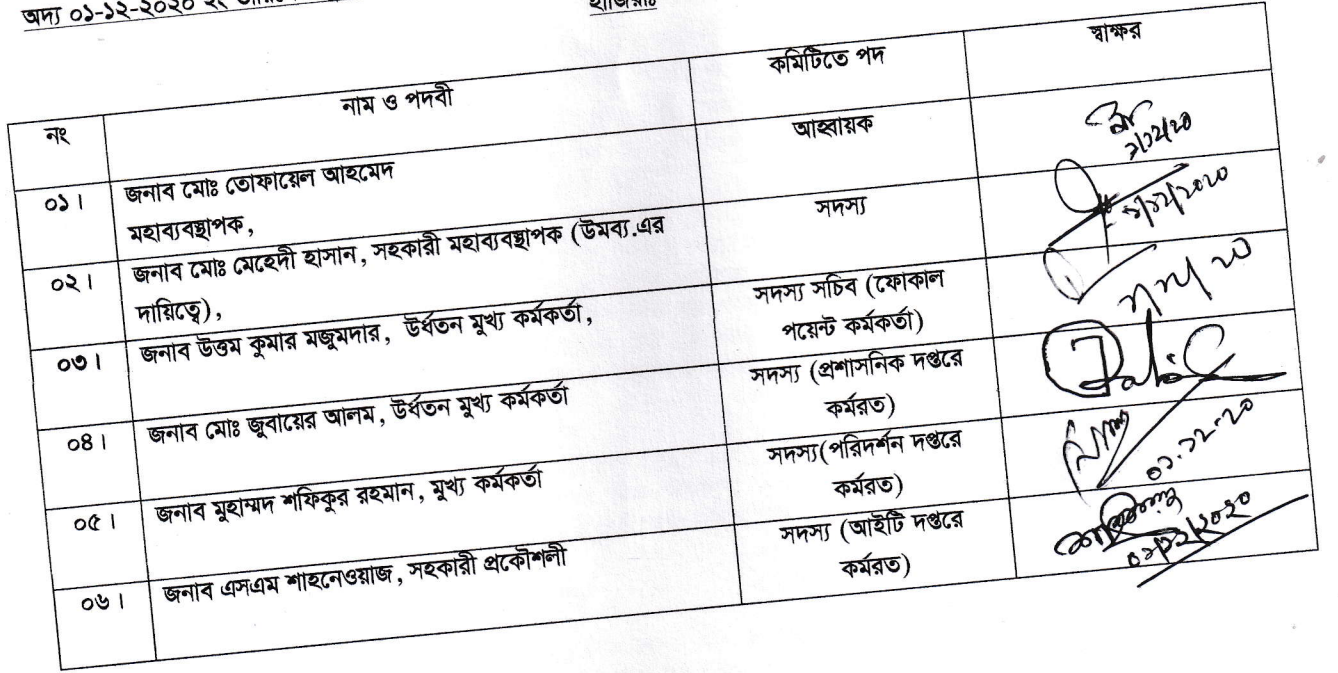 অদ্য ০১-১২-২০২০ ইং
হাজিরাঃ
নং	নাম ও পদবী	কমিটিতে পদ	স্বাক্ষর
০১।	জনাব মোঃ তোফায়েল আহমেদ
মহাব্যবস্থাপক,	আহ্বায়ক	১/১২/২০
০২।	জনাব মোঃ মেহেদী হাসান, সহকারী মহাব্যবস্থাপক (উমব্য.এর
দায়িত্বে),	সদস্য	১/১২/২০২০
০৩।	জনাব উত্তম কুমার মজুমদার, উর্ধতন মুখ্য কর্মকর্তা,	সদস্য সচিব (ফোকাল
পয়েন্ট কর্মকর্তা)
০৪।	জনাব মোঃ জুবায়ের আলম, উর্ধতন মুখ্য কর্মকর্তা	সদস্য (প্রশাসনিক দপ্তরে
কর্মরত)
০৫।	জনাব মুহাম্মদ শফিকুর রহমান, মুখ্য কর্মকর্তা	সদস্য(পরিদর্শন দপ্তরে
কর্মরত)	০১.১২.২০
০৬।	জনাব এসএম শাহনেওয়াজ, সহকারী প্রকৌশলী	সদস্য (আইটি দপ্তরে
কর্মরত)	০১/১২/২০২০